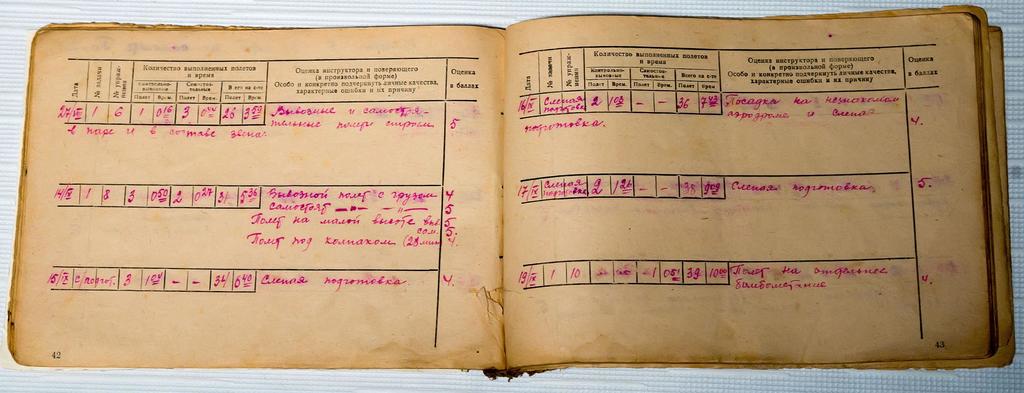 Дата
№ задачи
№ упраж-
нения
Количество выполненных полетов
и время
Контрольно-
вывозные
Самостоя-
тельные
Всего на с-те
Полет Врем. Полет Врем. Полет Врем.
Оценка инструктора и поверяющего
(в произвольной форме)
Особо и конкретно подчеркнуть личные качества,
характерные ошибки и их причину
Оценка
в баллах
1 6 1 3 28 3 Вывозные и самостоя-
тельные полеты строем
в паре и в составе звена.
5
14/IX 1 8 3 0 50 2 0 27 31 5 36 Вывозной полет с грузом 4
самостоят — " — — " — 5
Полет на малой высоте выв 5
сам. 5.
Полет под колпаком (28 мин 4.
15/IX с/подгот. 3 1 04 – – 34 6 40 Слепая подготовка. 4.
42
Дата
№ задачи
№ упраж-
нения
Количество выполненных полетов
и время
Контрольно-
вывозные
Самостоя-
тельные
Всего на с-те
Полет Врем. Полет Врем. Полет Врем.
Оценка инструктора и поверяющего
(в произвольной форме)
Особо и конкретно подчеркнуть личные качества,
характерные ошибки и их причину
Оценка
в баллах
16/IX Слепая 2 1 – – 36 7 Посадка на незнакомом
подготовка. аэродроме и слепая
подготовка. 4.
17/IX Слепая подготовка 2 1 – – 38 9 Слепая подготовка. 5.
19/IX 1 10 – – 1 0 51 39 10 00 Полет на отдельное
бомбометание 4.
43